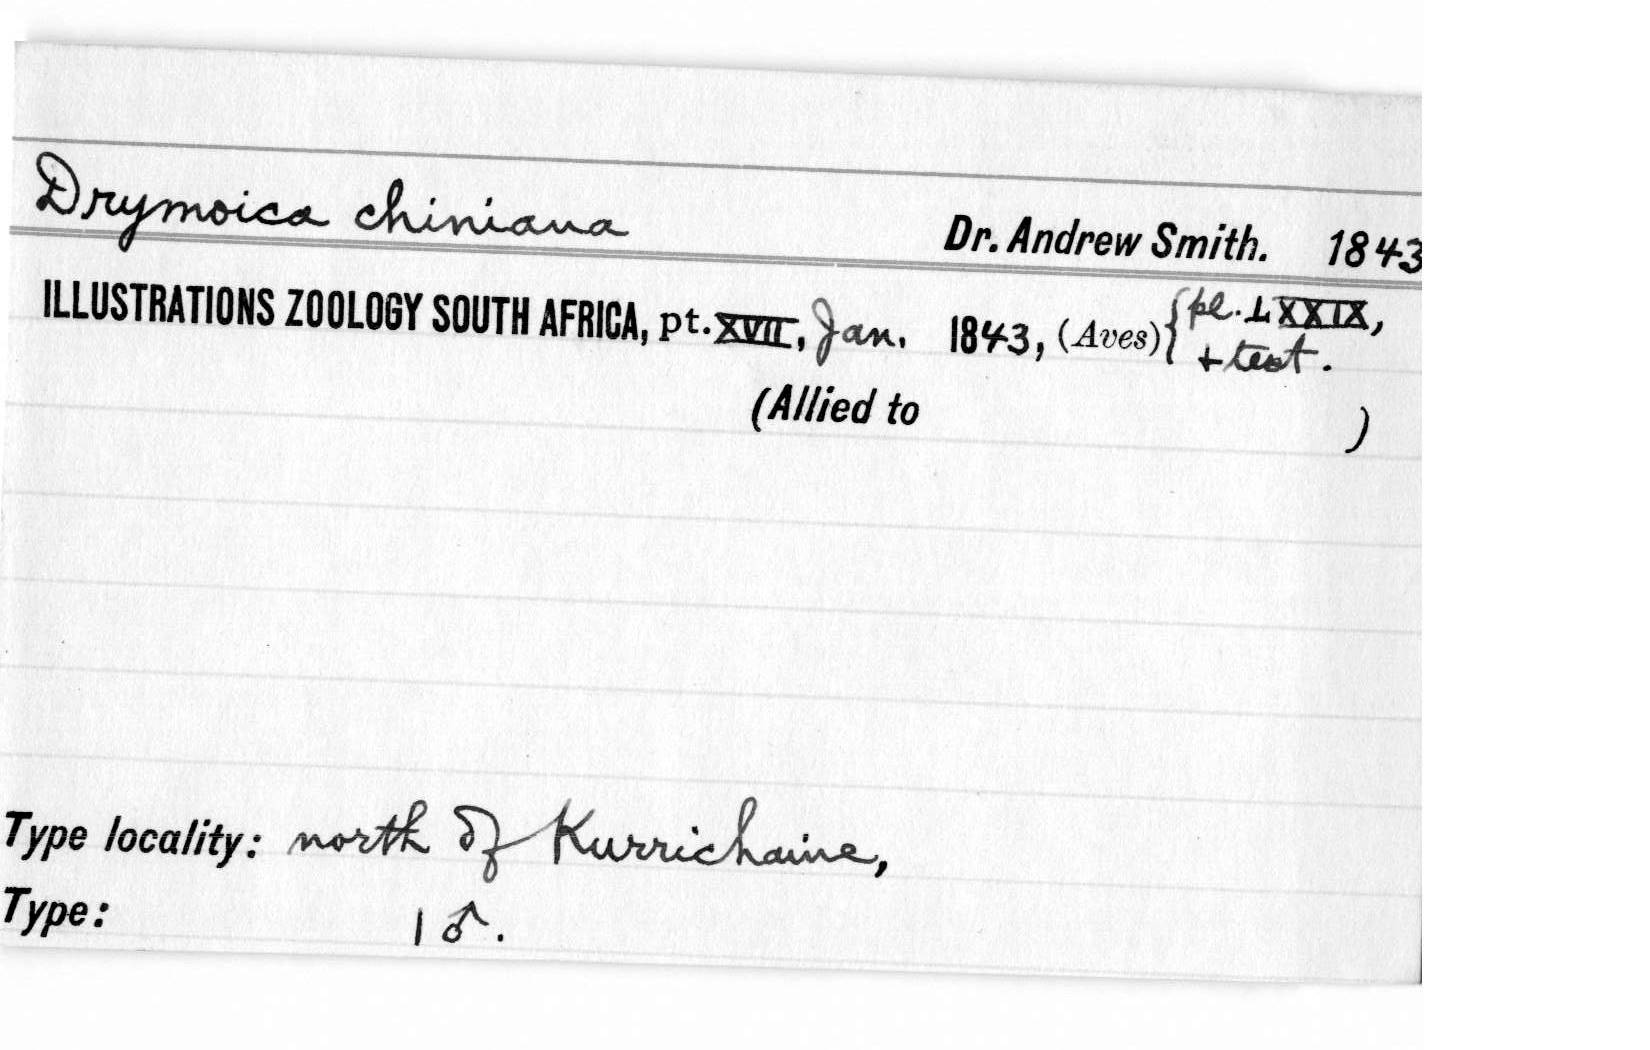 Drymoica chiniana Dr. Andrew Smith. 1843
ILLUSTRATIONS ZOOLOGY SOUTH AFRICA, pt. XVII, Jan. 1843, (Aves) { pl. LXXIX,
+ text.
(Allied to )
Type locality: north of Kurrichaine,
Type: 1 ♂.